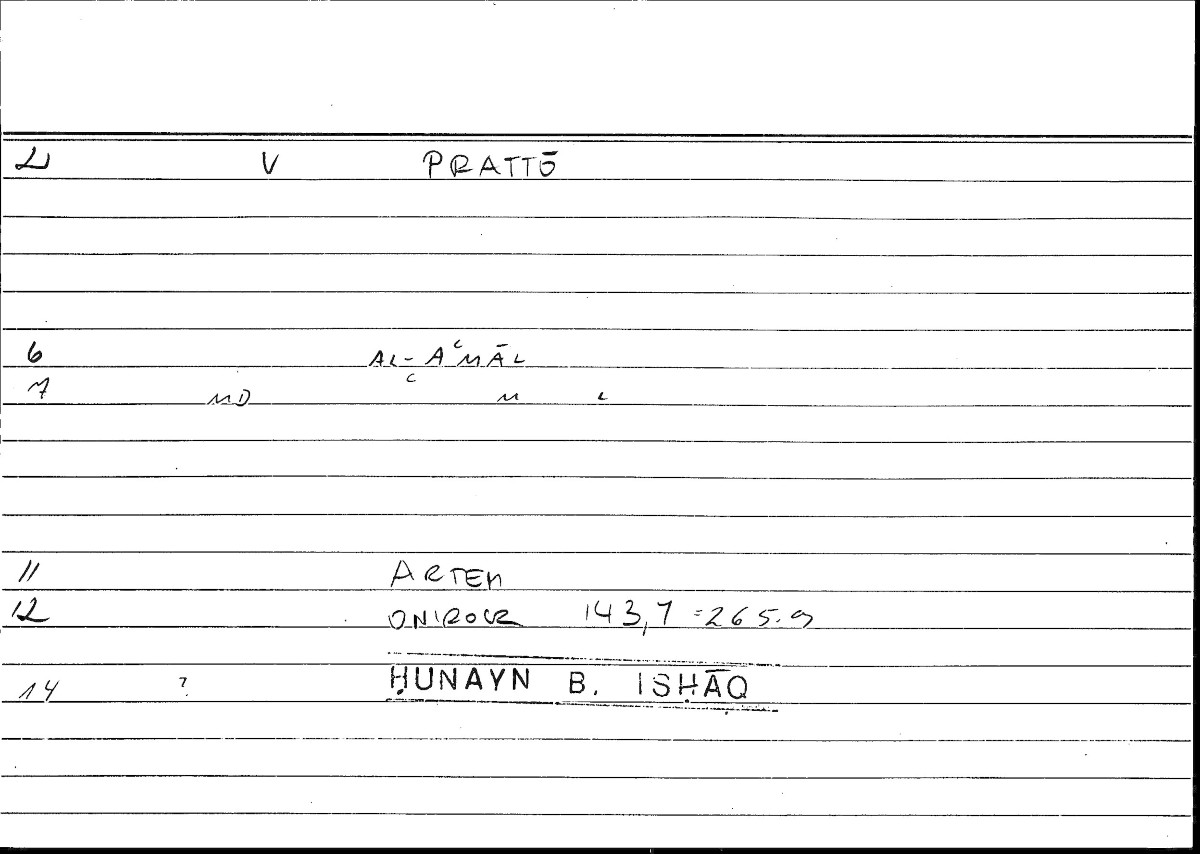 2 V PRATTŌ
6 AL-AʿMĀL
7 MD ʿ M L
11 ARTEM
12 ONIROCR 143,7 = 265.9
14 ? ḤUNAYN B. ISḤĀQ